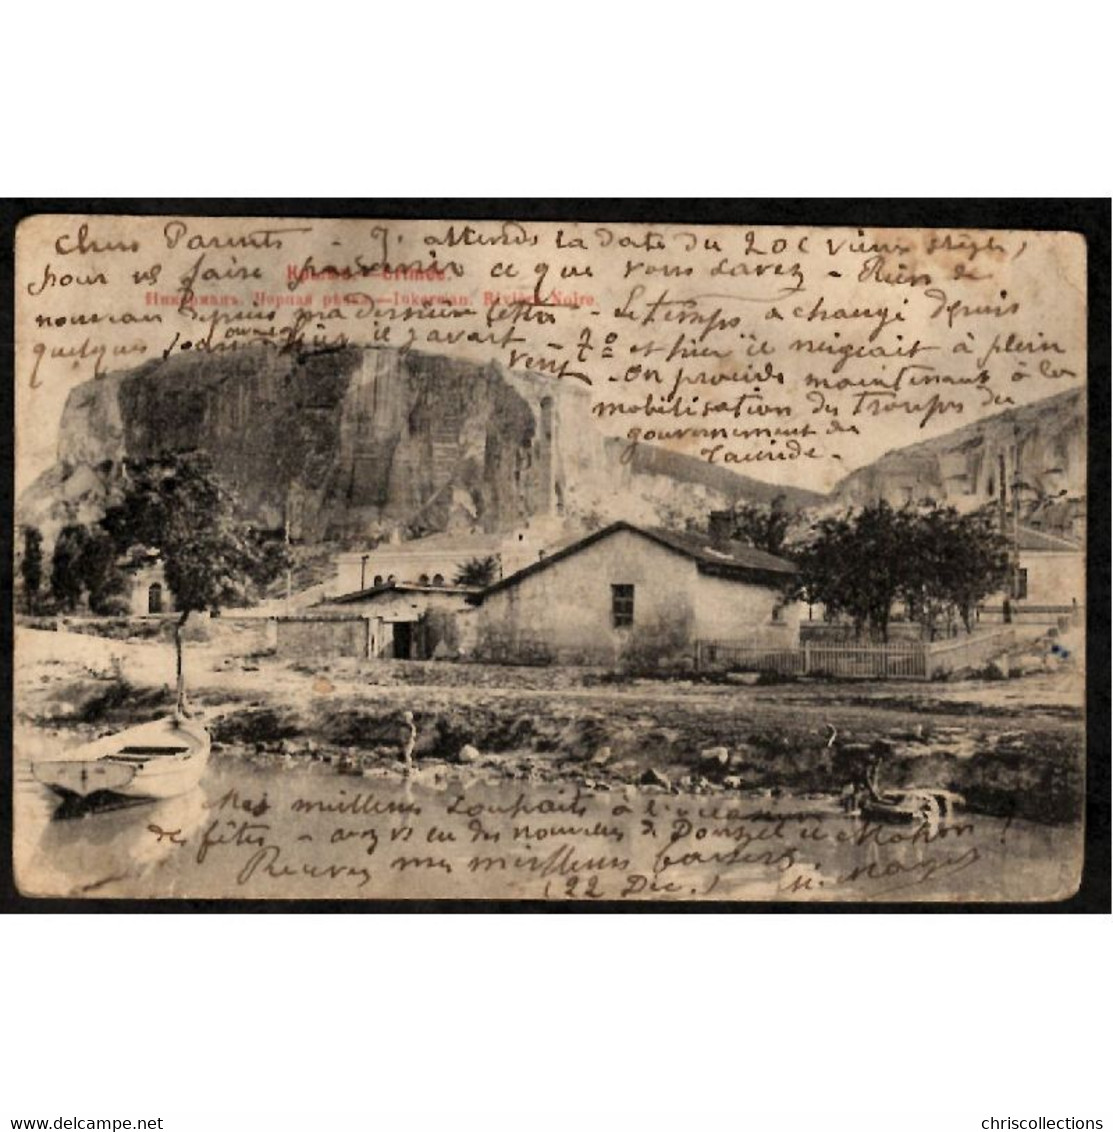 Chers Parents - J'attends la date du 20 (vieux style)
pour vs faire parvenir ce que vous savez - Rien de
Крымъ. - Crimée.
Инкерманъ. Чорная рѣчка. - Inkerman. Rivière Noire.
nouveau depuis ma dernière lettre - Le temps a changé depuis
quelques jours hier il y avait - 7° et hier il neigeait à plein
vent - On procède maintenant à la
mobilisation des troupes du
gouvernement de
Tauride. -
Mes meilleurs souhaits à l'occasion
de fêtes - avez vs eu des nouvelles de et Mahon ?
Recevez mes meilleurs baisers.
(22 Dec.)
www.delcampe.net
chriscollections